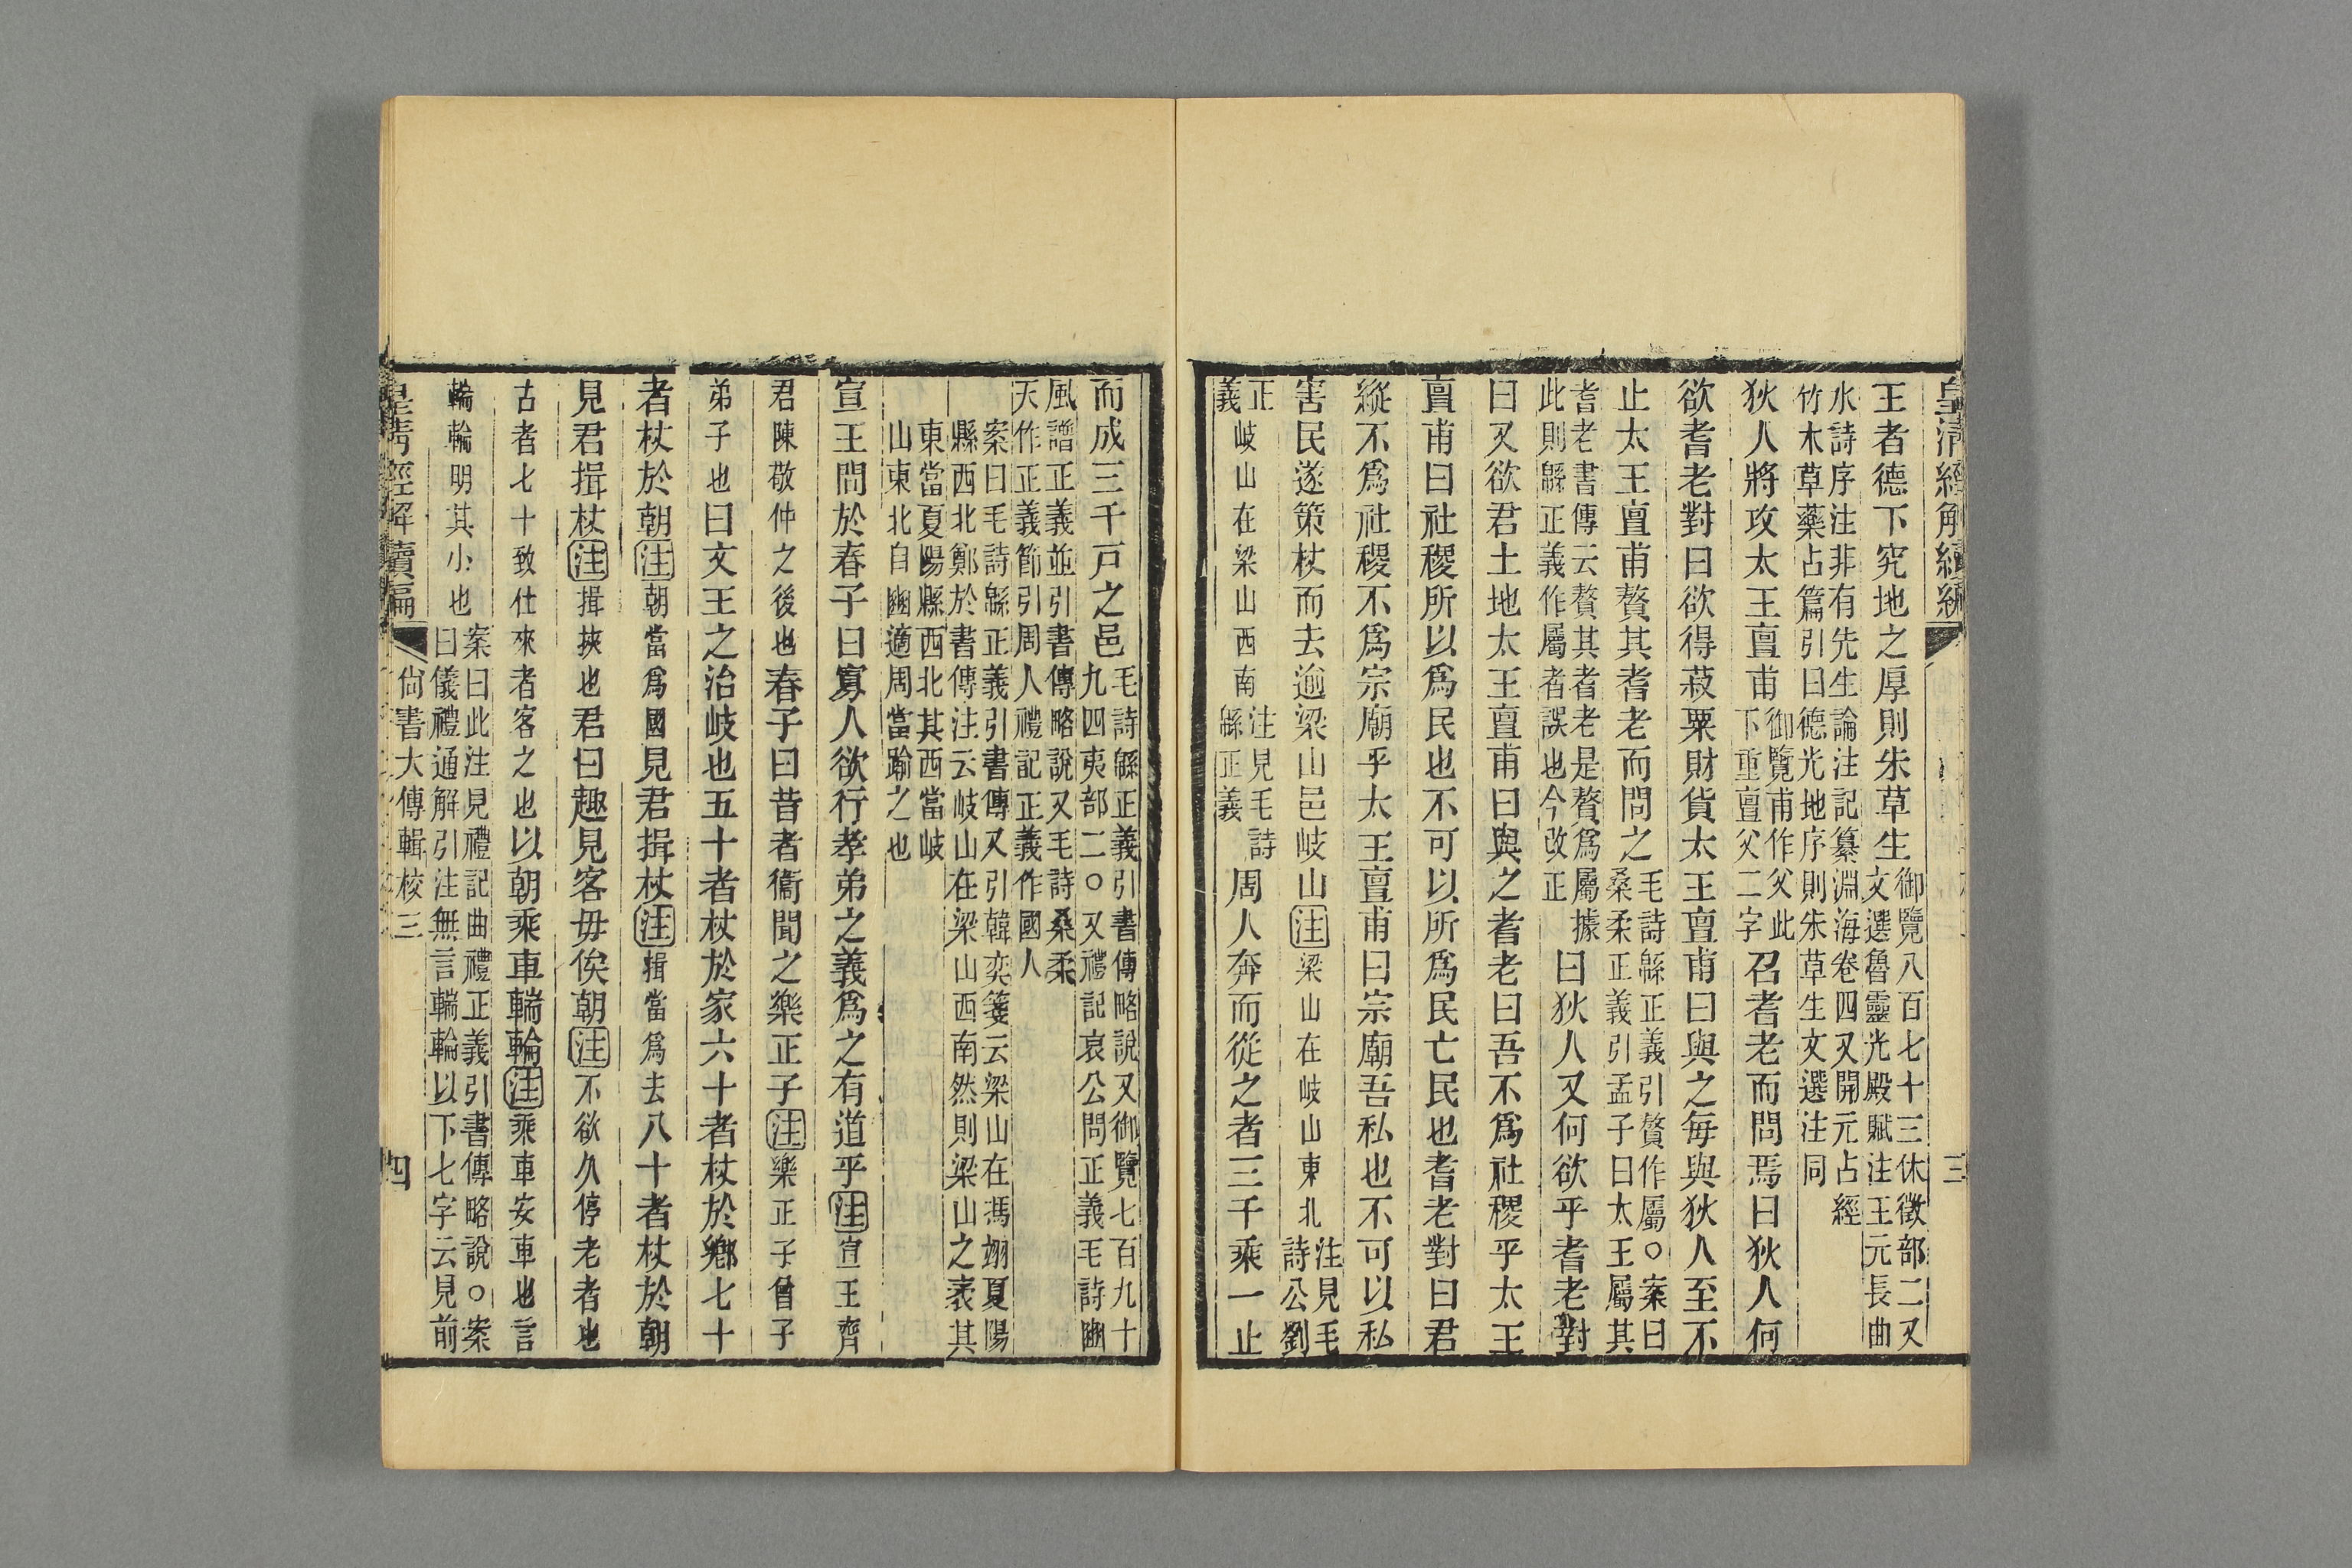 皇清經解續編
三
王者德下究地之厚則朱草生御覽八百七十三休徵部二又文選魯靈光殿賦注王元長曲
水詩序注非有先生論注記纂淵海卷四又開元占經竹木草藥占篇引曰德光地序則朱草生文選注同
狄人將攻太王亶甫御覽甫作父此下重亶父二字召耆老而問焉曰狄人何
欲耆老對曰欲得菽粟財貨太王亶甫曰與之每與狄人至不
止太王亶甫贅其耆老而問之毛詩緜正義引贅作屬○案曰桑柔正義引孟子曰太王屬其
耆老書傳云贅其耆老是贅爲屬據此則緜正義作屬者誤也今改正曰狄人又何欲乎耆老對
曰又欲君土地太王亶甫曰與之耆老曰吾不爲社稷乎太王
亶甫曰社稷所以爲民也不可以所爲民亡民也耆老對曰君
縱不爲社稷不爲宗廟乎太王亶甫曰宗廟吾私也不可以私
害民遂策杖而去逾梁山邑岐山注梁山在岐山東北注見毛詩公劉
正義岐山在梁山西南注見毛詩緜正義周人奔而從之者三千乘一止
而成三千戶之邑毛詩緜正義引書傳略說又御覽七百九十九四夷部二○又禮記哀公問正義毛詩豳
風譜正義並引書傳略說又毛詩桑柔天作正義節引周人禮記正義作國人
案曰毛詩緜正義引書傳又引韓奕箋云梁山在馮翊夏陽縣西北鄭於書傳注云岐山在梁山西南然則梁山之袤其
東當夏陽縣西北其西當岐山東北自豳適周當踰之也
宣王問於春子曰寡人欲行孝弟之義爲之有道乎注宣王齊
君陳敬仲之後也春子曰昔者衞聞之樂正子注樂正子曾子
弟子也曰文王之治岐也五十者杖於家六十者杖於鄉七十
者杖於朝注朝當爲國見君揖杖注揖當爲去八十者杖於朝
見君揖杖注揖挾也君曰趣見客毋俟朝注不欲久停老者也
古者七十致仕來者客之也以朝乘車輲輪注乘車安車也言
輪輪明其小也案曰此注見禮記曲禮正義引書傳略說○案曰儀禮通解引注無言輲輪以下七字云見前
皇清經解續編
尙書大傳輯校三
四